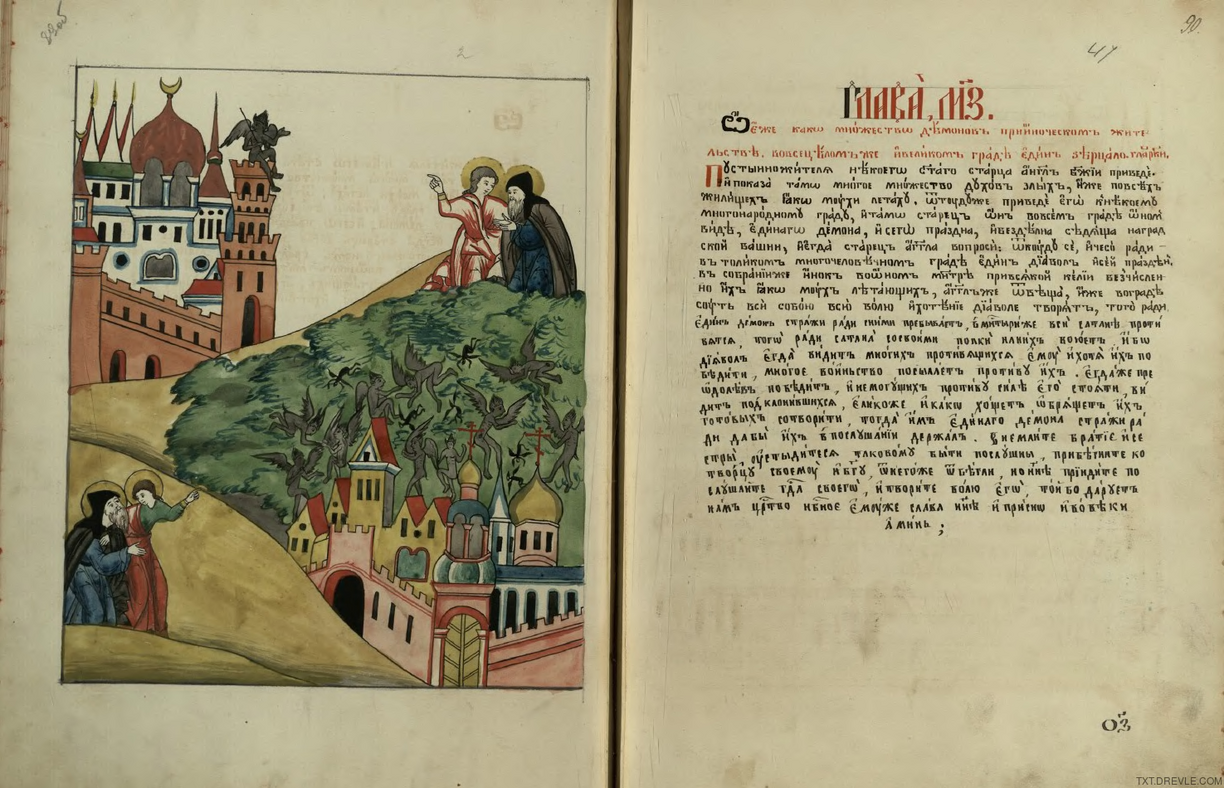 2
90
41
Глава̀, м҃з.
Ѿ е́же како мно́жество де́моновъ прїи́ноческомъ жите-
льствѣ. вовсецѣ́ломъ же и҆вели́комъ градѣ є҆ди́нъ зе́рцало.
Пустынножи́теля нѣ́коего ст҃а́го ста́рца а҆́гг҃лъ бж҃їи приведѐ.
и҆ показа̀ та́мо мно́гое мно́жество дꙋ́ховъ злы́хъ, и҆́же повсѣ́хъ
жили́щехъ ꙗ҆́ко мꙋ́хи лета́хꙋ. ѿтꙋ́дꙋже приведѐ є҆го̀ кнѣ́коемꙋ
многонаро́дномꙋ гра́дꙋ, и҆та́мо ста́рецъ ѻ҆́нъ вовсе́мъ гра́дѣ ѻ҆́номъ
ви́дѣ, є҆ди́наго де́мона, и҆сего̀ пра́здна, и҆бездѣ́лна сѣдѧ́ща наград
ско́й ба́шни, и҆є҆гда̀ ста́рецъ а҆́гг҃ла вопросѝ: ѿкꙋ́дꙋ сѐ, и҆чесѡ̀ ра́ди
въ толи́комъ многочеловѣ́чномъ гра́дѣ є҆ди́нъ дїа́волъ и҆се́й пра́зденъ,
въ собра́нїи же и҆́нокъ воѻ҆́номъ мн҃трѣ̀ привсѧ́кой ке́лїи безчи́слен
но и҆́хъ ꙗ҆́ко мꙋ́хъ лѣта́ющихъ, а҆́гг҃лъ же ѿвѣща̀, и҆́же вогра́дѣ
сꙋ́ть всѝ собо́ю всю̀ во́лю и҆хотѣ́нїе дїа́воле творѧ́тъ, того̀ ра́ди
є҆ди́нъ де́монъ стра́жи ра́ди сни́ми пребыва́етъ, вмн҃тыри́ же всѝ сатанѣ̀ проти
вѧ́тсѧ, тогѡ̀ ра́ди сатана̀ сосвои́ми полкѝ нани́хъ вою́етъ, и҆́бо
дїа́волъ є҆гда̀ ви́дитъ мно́гихъ проти́вѧщихсѧ є҆мꙋ̀ и҆хотѧ̀ и҆́хъ по
бѣди́ти, мно́гое во́иньство посыла́етъ проти́вꙋ и҆́хъ. є҆гда́же пре
ѡ҆долѣ́въ побѣди́тъ, и҆немогꙋ́щихъ проти́вꙋ си́лѣ є҆гѡ̀ стоѧ́ти, ви́
дитъ подклони́вшихсѧ, є҆ли́коже и҆ка́кѡ хо́щетъ ѡ҆брѧ́щетъ и҆́хъ
гото́выхъ сотвори́ти, тогда̀ и҆́мъ є҆ди́наго де́мона стра́жи ра́
ди дабы̀ и҆́хъ впослꙋша́нїи держа́лъ. Внемли́те бра́тїе и҆се
стры̀, ᲂу҆стыди́тесѧ такосо́мꙋ бы́ти послꙋ́шны, прибѣ́гните ко
творцꙋ̀ своемꙋ̀ и҆бг҃ꙋ, ѿнего́же ѿбѣ́гли, но нн҃ѣ прїиди́те по
слꙋ́шайте гдⷭ҇а своегѡ̀, и҆твори́те во́лю є҆гѡ̀, то́й бо да́рꙋетъ
на́мъ црⷭ҇тво нбⷭ҇ное є҆мꙋ́же сла́ва нн҃ѣ и҆при́снѡ и҆вовѣ́ки
а҆ми́нь;
ѻ҃з
TXT.DREVLE.COM